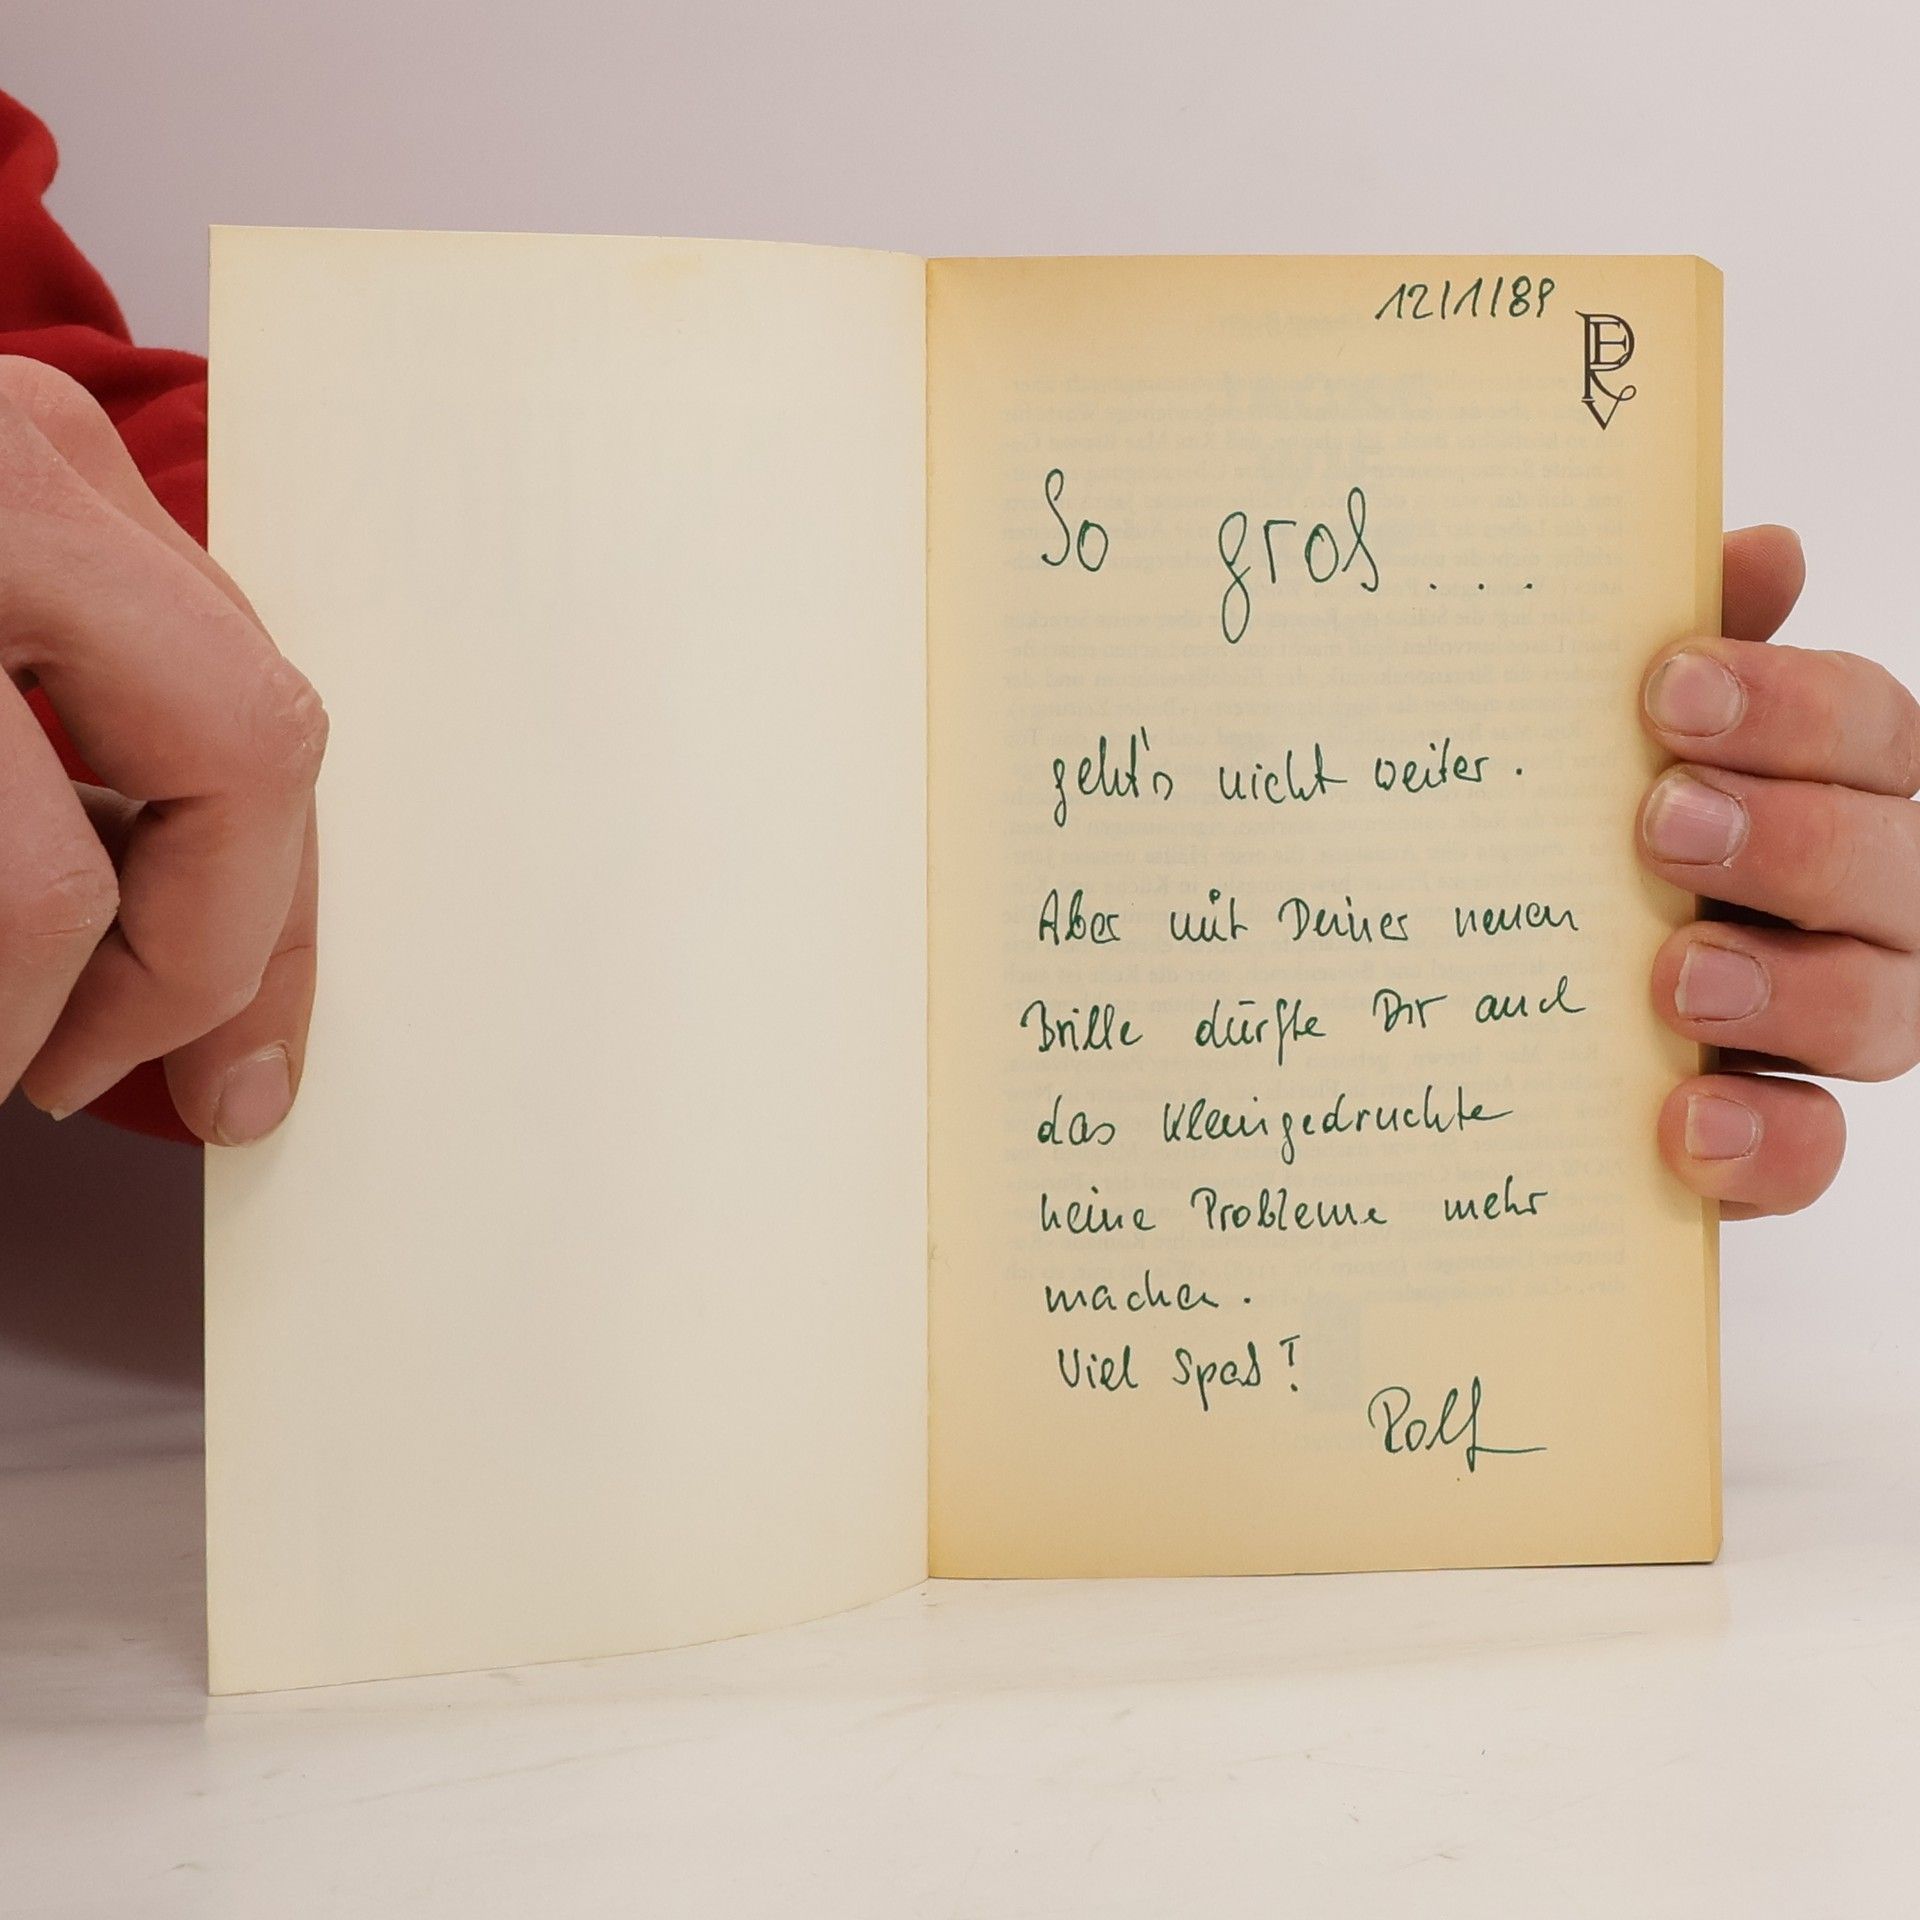 12/1/89
So groß ....
geht's nicht weiter.
Aber mit Deiner neuen
Brille dürfte Dir auch
das Kleingedruckte
keine Probleme mehr
machen.
Viel Spaß!
Rolf